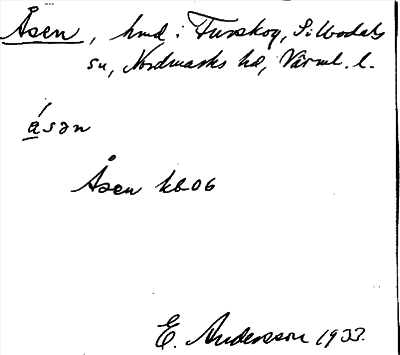 Åsen, hmd i Furskog, Silbodals
sn, Nordmarks hd, Värml. l.
ǻsən
Åsen kb06
E. Andersson 1933.